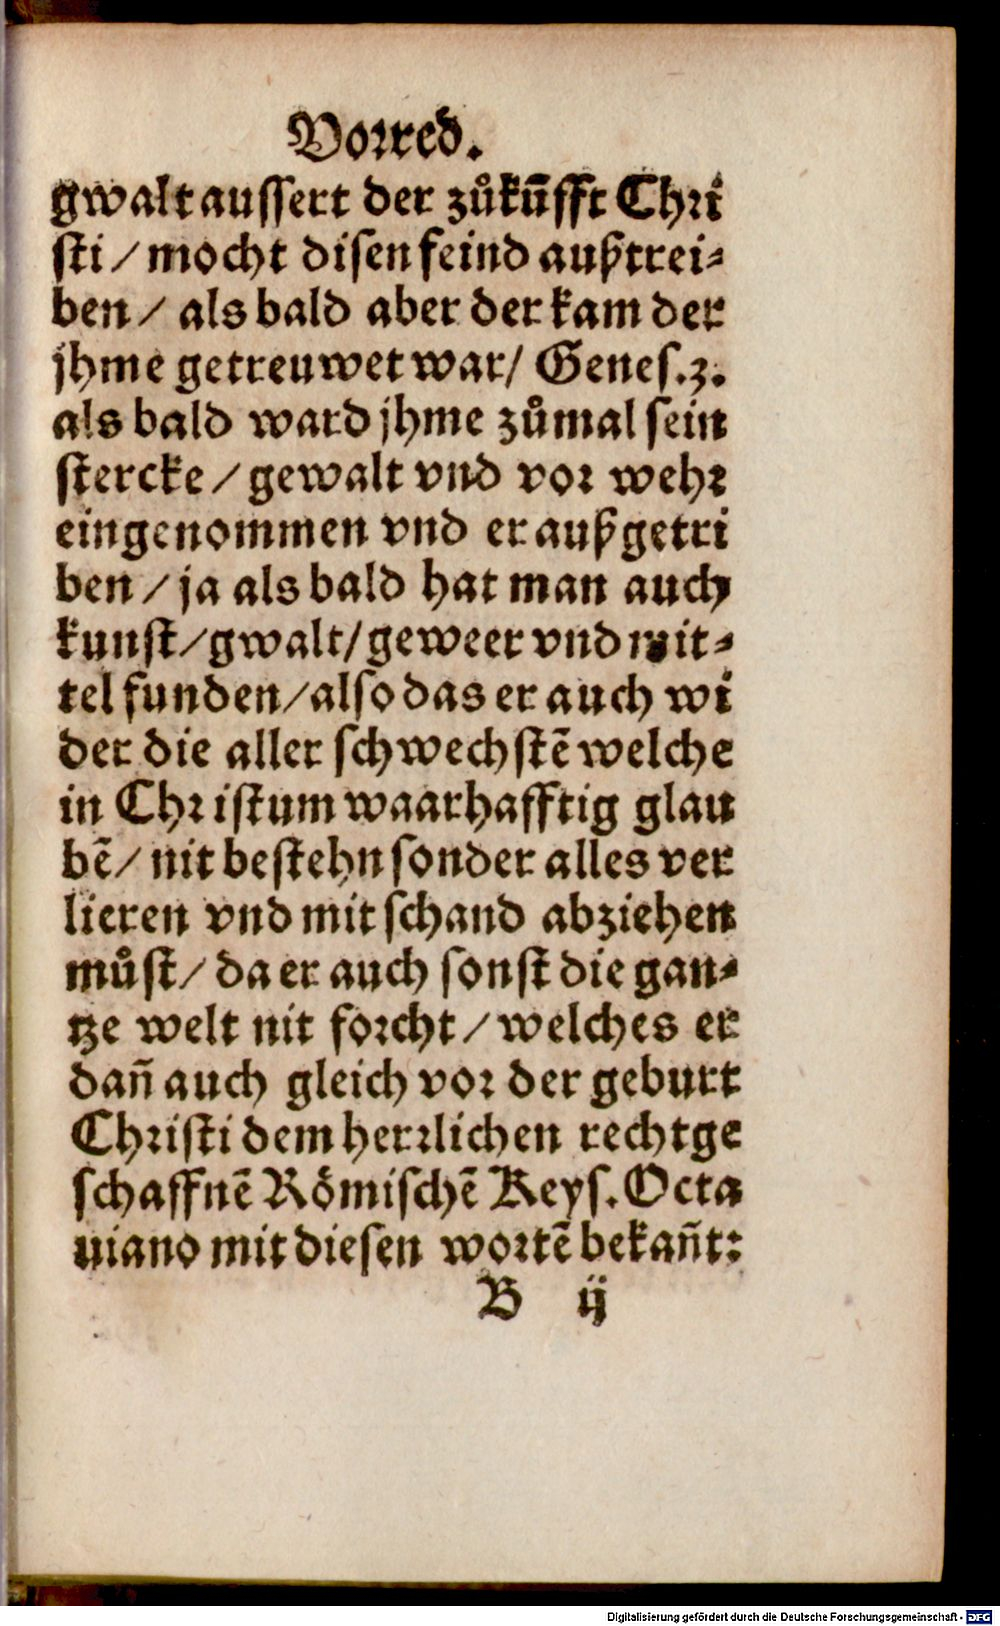 Vorred.
gwalt aussert der zůkūfft Chri
sti / mocht disen feind außtrei⸗
ben / als bald aber der kam der
jhme getreuwet war / Genes. 3.
als bald ward jhme zůmal sein
stercke / gewalt vnd vor wehr
eingenommen vnd er außgetri
ben / ja als bald hat man auch
kunst / gwalt / geweer vnd mit⸗
tel funden / also das er auch wi
der die aller schwechstē welche
in Christum waarhafftig glau
bē / nit bestehn sonder alles ver
lieren vnd mit schand abziehen
můst / da er auch sonst die gan⸗
tze welt nit forcht / welches er
dan̄ auch gleich vor der geburt
Christi dem herrlichen rechtge
schaffnē Römischē Keys. Octa
uiano mit diesen wortē bekan̄t:
B ij
Digitalisierung gefördert durch die Deutsche Forschungsgemeinschaft - DFG